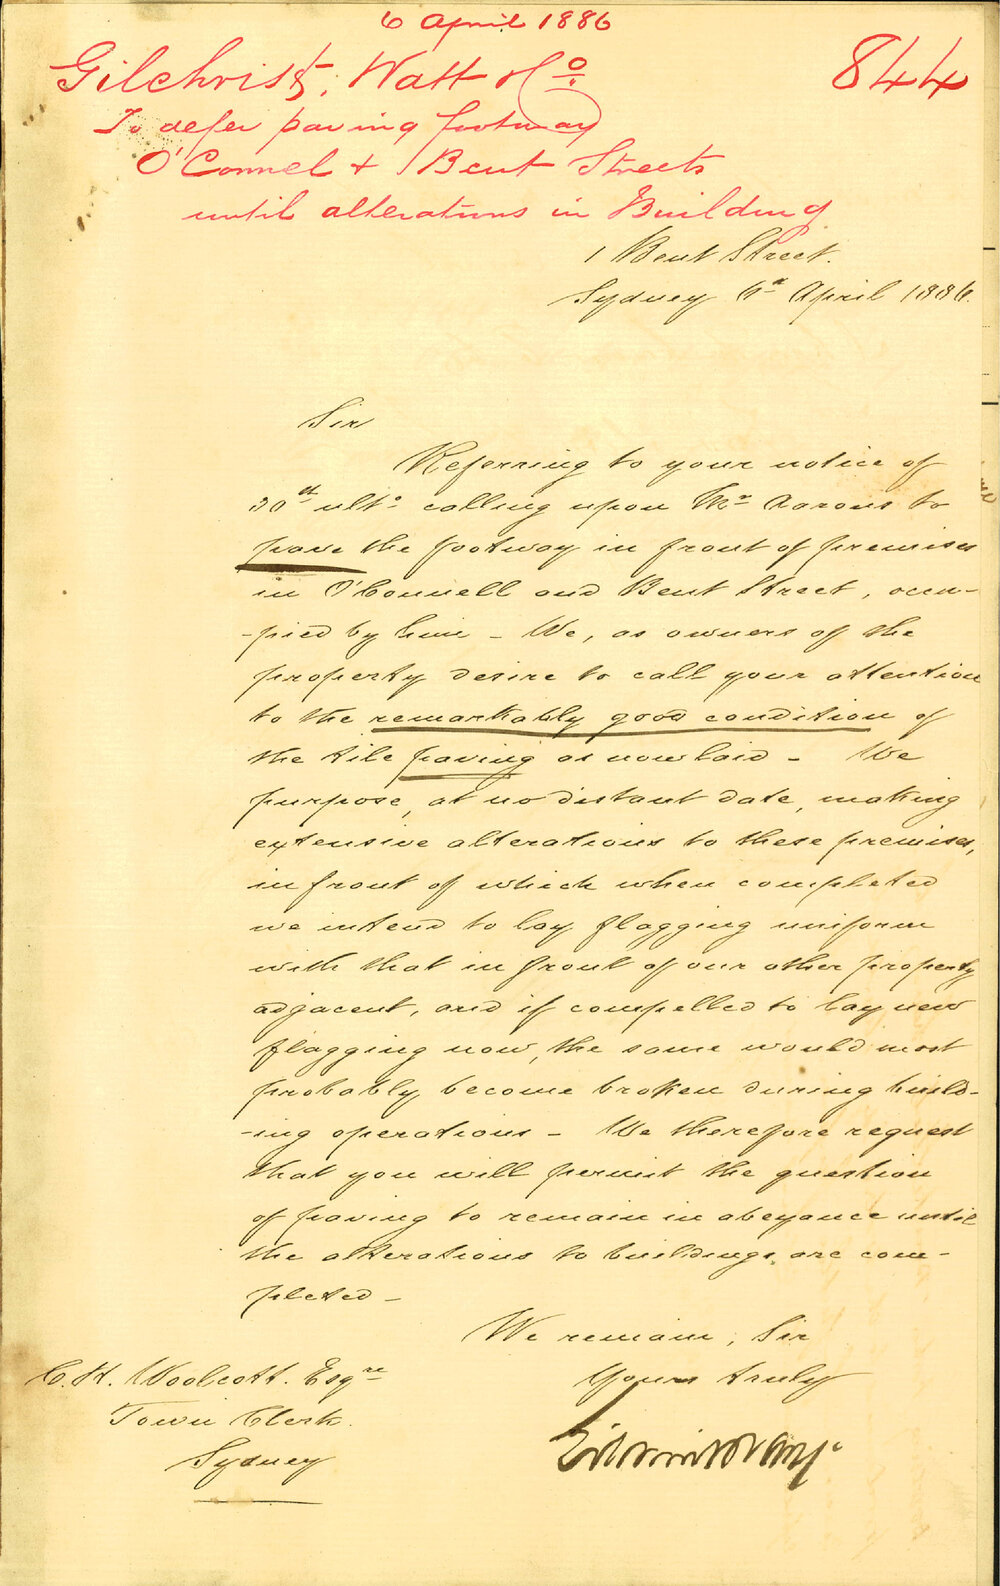 6 April 1886
Gilchrist, Watt & Co.
844
To defer paving footway
O'Connel & Bent Streets
until alterations in Building
1 Bent Street.
Sydney 6th April 1886.
Sir
Referring to your notice of
30th ulto. calling upon Mr Aarons to
pave the footway in front of premises
in O'Connell and Bent Street, occu-
-pied by him - We, as owners of the
property desire to call your attention
to the remarkably good condition of
the tile paving as now laid - We
purpose, at no distant date, making
extensive alterations to these premises,
in front of which when completed
we intend to lay flagging uniform
with that in front of our other property
adjacent, and if compelled to lay new
flagging now, the same would most
probably become broken during build-
-ing operations - We therefore request
that you will permit the question
of paving to remain in abeyance until
the alterations to buildings are com-
pleted -
We remain, Sir
Yours truly
C. H. Woolcott. Esqre
Town Clerk.
Sydney